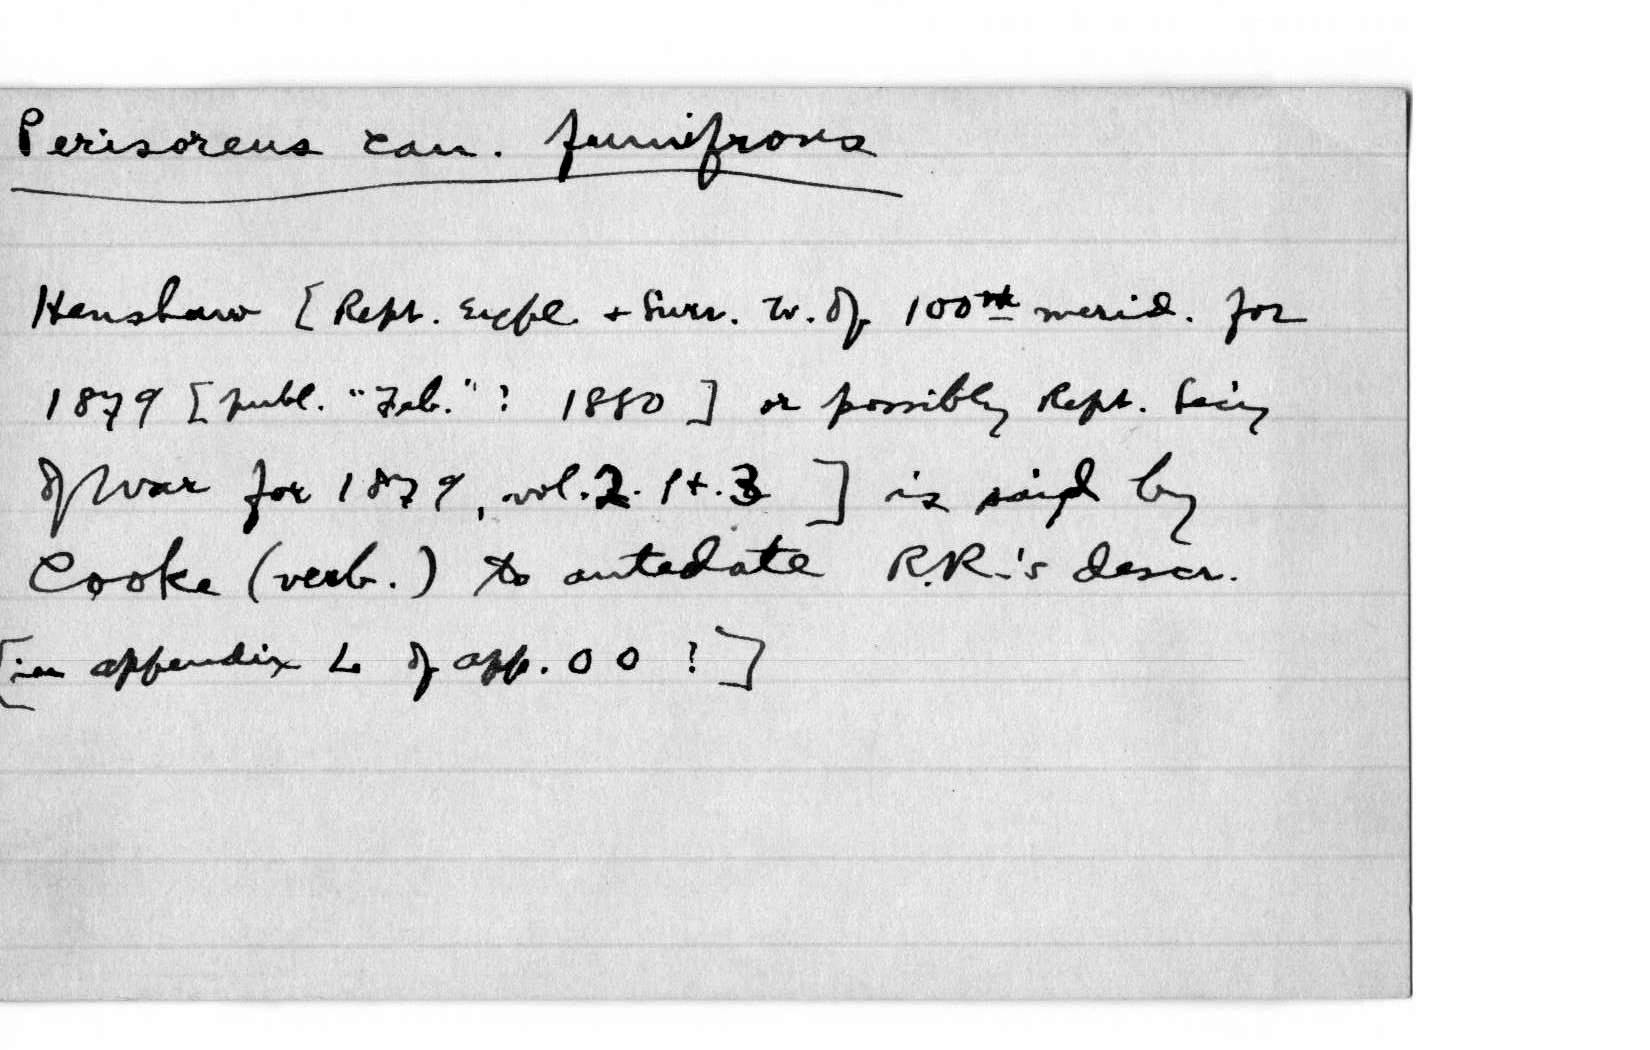 Perisoreus can. fumifrons
Henshaw [Rept. Expl. + Surv. W. of 100th merid. for
1879 [publ. "Feb."? 1880] or possibly Rept. Sec'y
of War for 1879, vol. 2. pt. 3 ] is said by
Cooke (verb.) to antedate R.R.'s descr.
[in appendix L of app. O O ?]